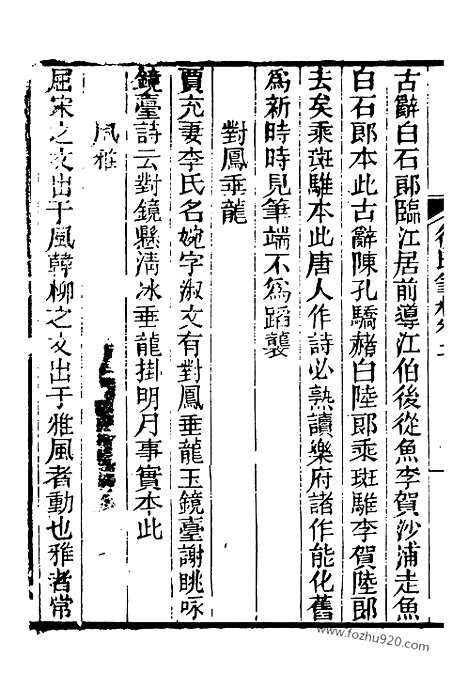 古辭白石郎臨江居前導江伯後從魚李賀沙浦走魚
白石郎本此古辭陳孔驕赭白陸郎乘斑騅李賀陸郎
去矣乘斑騅本此唐人作詩必熟讀樂府諸作能化舊
爲新時時見筆端不爲蹈襲
對鳳垂龍
賈充妻李氏名婉字淑文有對鳳垂龍玉鏡臺謝眺咏
鏡臺詩云對鏡懸清冰垂龍掛明月事實本此
風雅
屈宋之文出于風韓柳之文出于雅風者動也雅者常
www.fozhu920.com